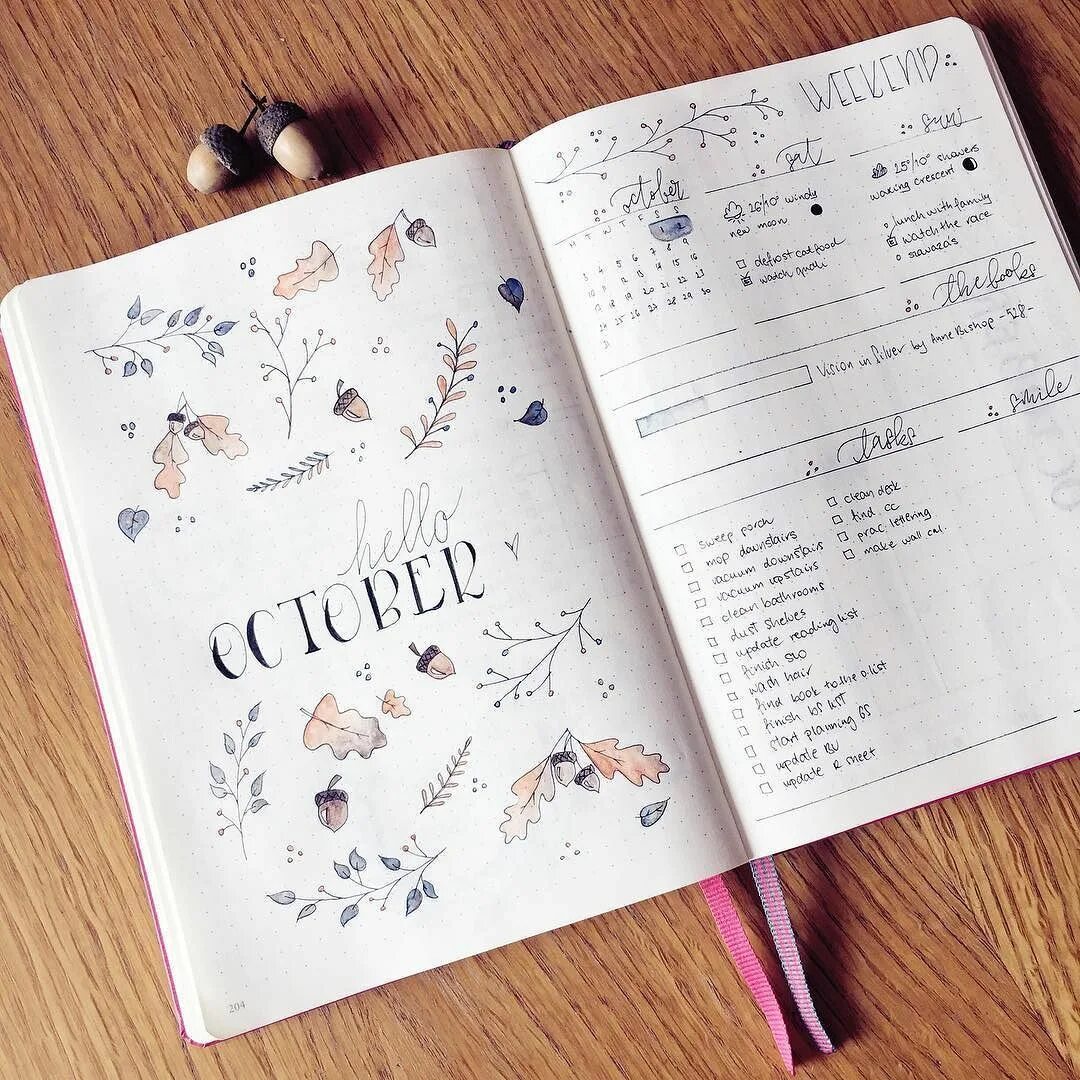 hello
OCTOBER
204
WEEKEND
october
M T W T F S S
1 2
3 4 5 6 7 8 9
10 11 12 13 14 15 16
17 18 19 20 21 22 23
24 25 26 27 28 29 30
31
sat
26°/10° windy
new moon
defrost cat food
watch quali
sun
25°/10° showers
waxing crescent
lunch with family
watch the race
the books
Vision in Silver by Anne Bishop -528-
tasks
smile
sweep porch
mop downstairs
vacuum downstairs
vacuum upstairs
clean bathrooms
dust shelves
update reading list
finish
wash hair
find book to the a list
finish
start planning
update
update R sheet
clean desk
find cc
prac. lettering
make wall cal.